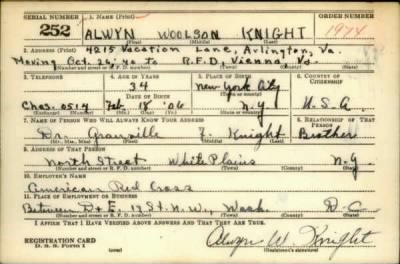 SERIAL NUMBER 1. NAME (Print) ORDER NUMBER
252 ALWYN WOOLSON KNIGHT 1974
(First) (Middle) (Last)
2. ADDRESS (Print)
4215 Vacation Lane, Arlington, Va.
Moving Oct. 26, '40 to R.F.D, Vienna, Va.
(Number and street or R. F. D. number) (Town) (County) (State)
3. TELEPHONE 4. AGE IN YEARS 5. PLACE OF BIRTH 6. COUNTRY OF CITIZENSHIP
34 New York City
DATE OF BIRTH (Town or county)
Ches. 0514 Feb 18 '06 N.Y. U.S.A.
(Exchange) (Number) (Mo.) (Day) (Yr.) (State or country)
7. NAME OF PERSON WHO WILL ALWAYS KNOW YOUR ADDRESS 8. RELATIONSHIP OF THAT PERSON
Dr. Granville F. Knight Brother
(Mr., Mrs., Miss) (First) (Middle) (Last)
9. ADDRESS OF THAT PERSON
North Street White Plains N.Y.
(Number and street or R. F. D. number) (Town) (County) (State)
10. EMPLOYER'S NAME
American Red Cross
11. PLACE OF EMPLOYMENT OR BUSINESS
Between D + E, 17 St. N.W., Wash. D.C.
(Number and street or R. F. D. number) (Town) (County) (State)
I AFFIRM THAT I HAVE VERIFIED ABOVE ANSWERS AND THAT THEY ARE TRUE.
REGISTRATION CARD
D. S. S. Form 1 Alwyn W. Knight
(Registrant's signature)